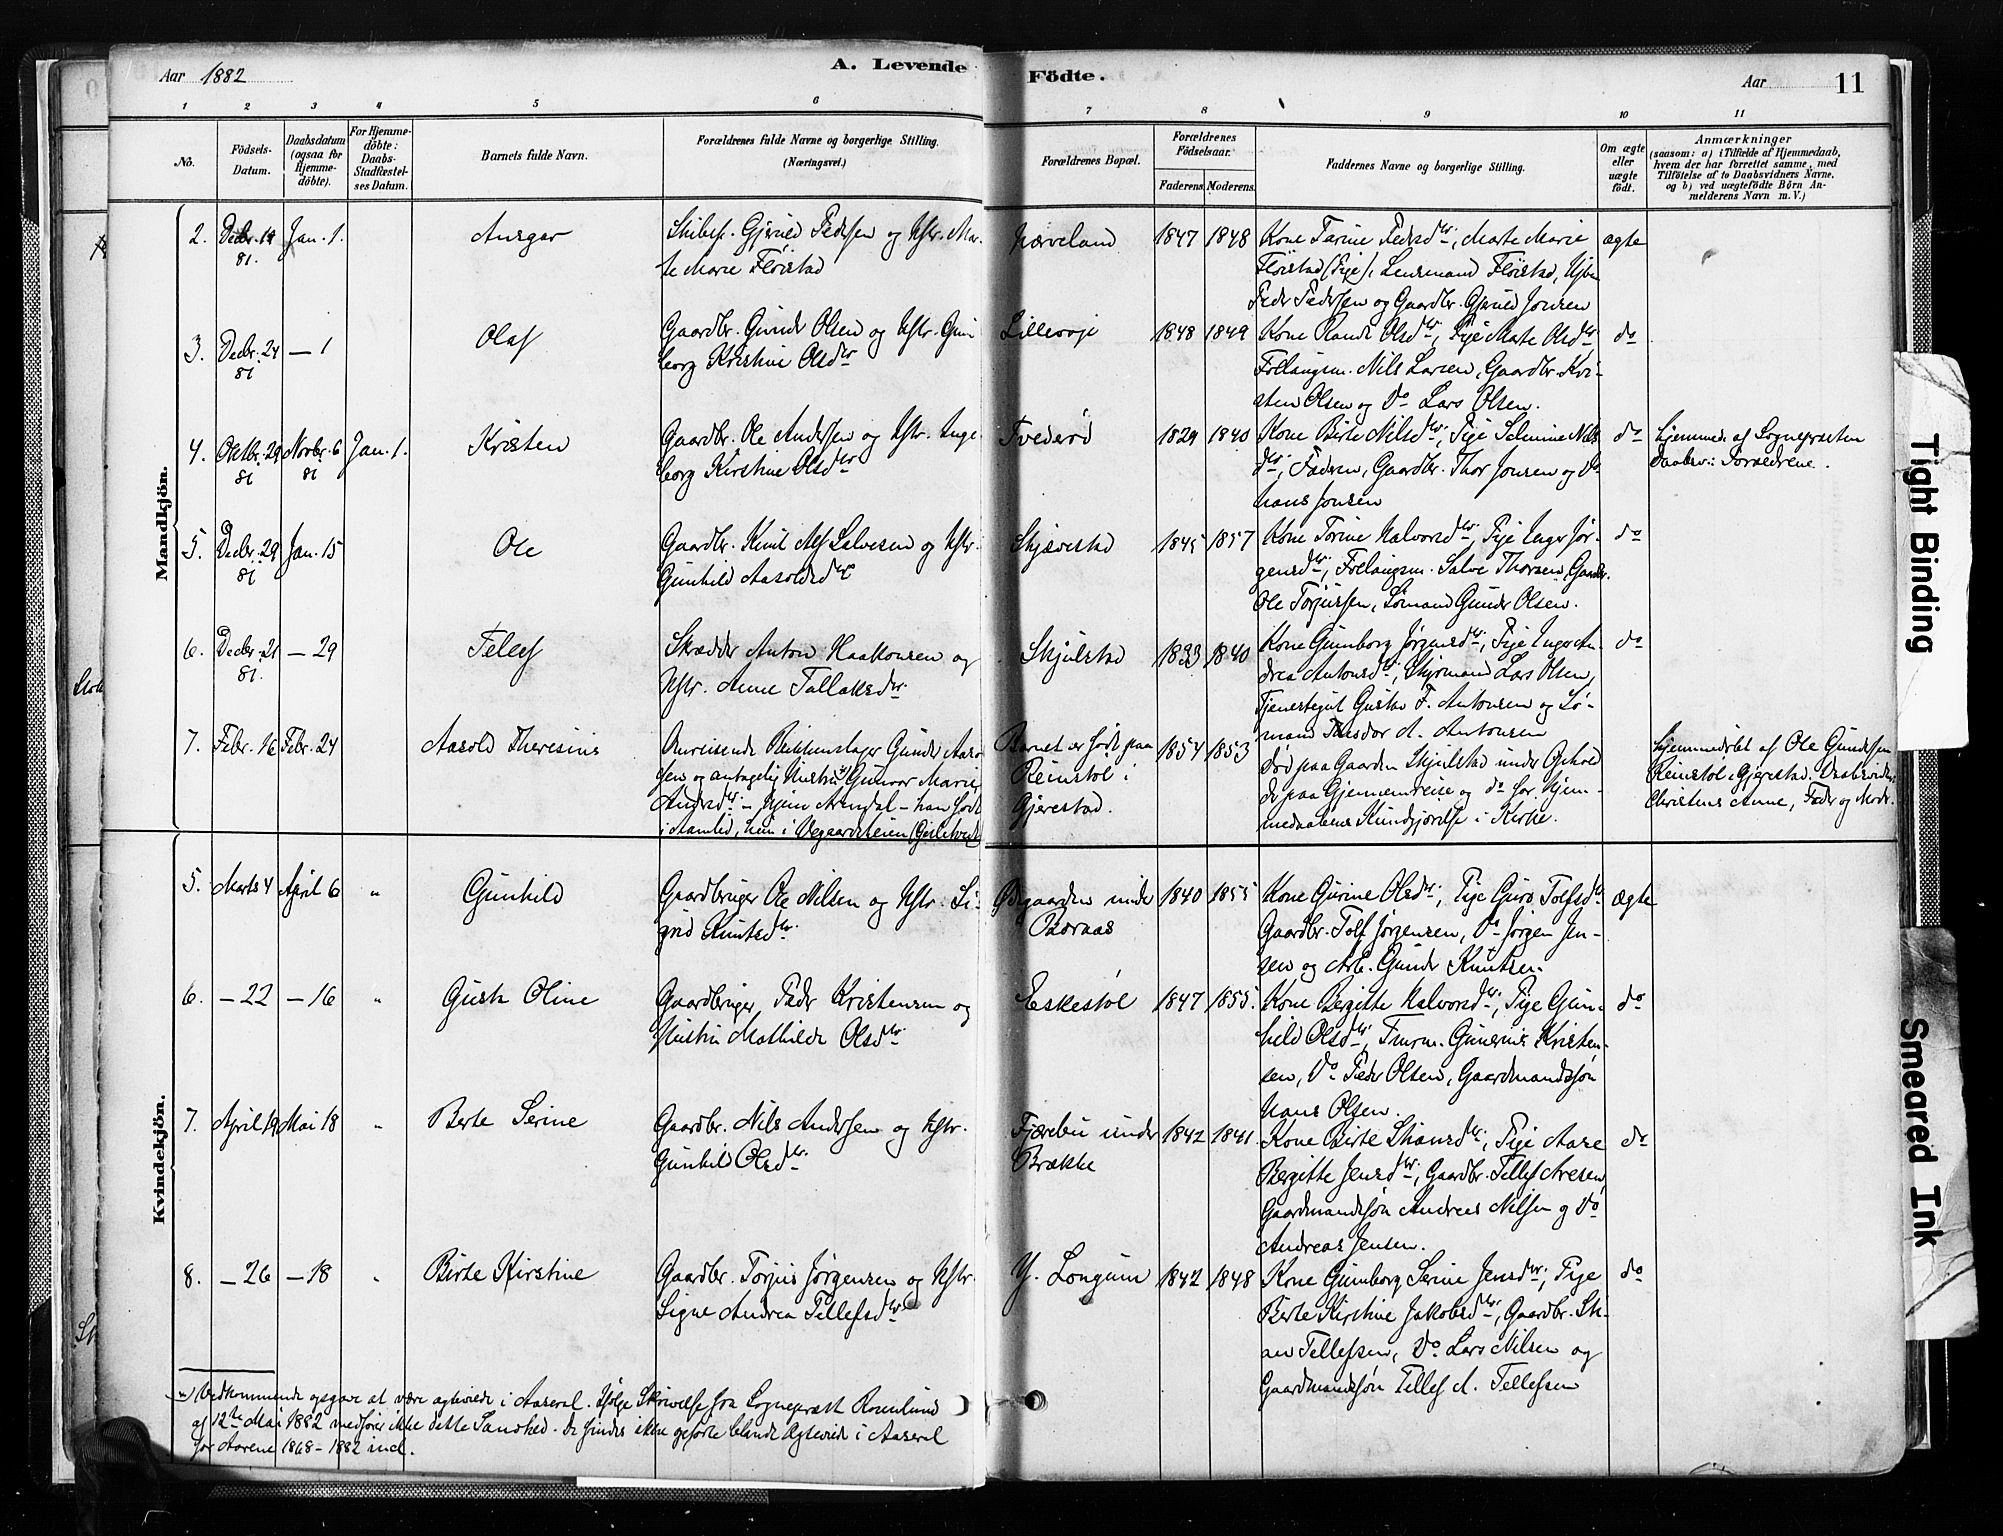 Aar 1882
A. Levende
Födte.
Aar
11
1
2
3
4
5
6
7
8
9
10
11
No.
Födsels-
Datum.
Daabsdatum
(ogsaa for
Hjemme-
döbte).
For Hjemme-
döbte:
Daabs-
Stadfæstel-
ses Datum.
Barnets fulde Navn.
Forældrenes fulde Navne og borgerlige Stilling.
(Næringsvei.)
Forældrenes Bopæl.
Forældrenes
Födselsaar.
Faderens.
Moderens.
Faddernes Navne og borgerlige Stilling.
Om ægte
eller
uægte
födt.
Anmærkninger
(saasom: a) i Tilfælde af Hjemmedaab,
hvem der har forrettet samme, med
Tilföielse af to Daabsvidners Navne,
og b) ved uægtefödte Börn An-
melderens Navn m. V.)
Mandkjön.
2. Decbr. 19 81. Jan. 1. Ansgar
Skibsf. Gjeruld Pedersen og Hstr. Mar-
te Marie Fløistad
1847 1848
Kone Tarine Pedersdtr, Marte Marie
Fløistad (Pige), Lensmand Fløistad,
Peder Pedersen og Gaardbr. Gjeruld Jensen
ægte
3. Decbr. 24 81 — 1 Olaf
Gaardbr. Gunder Olsen og Hstr. Gun-
borg Kristine Olsdtr
1848 1849
Kone Olsdtr, Pige Marte Olsdtr
Nils Larsen, Gaardbr. Kri-
sten Olsen og Do Lars Olsen.
do
4. Oktbr. 29 81 Novbr. 6 81 Jan. 1. Kristen
Gaardbr. Ole Andersen og Hstr. Inge-
borg Kirstine Olsdtr
Tvederø
1829 1840
Kone Birte Nilsdtr, Pige Selmine Nils-
dtr, Faderen, Gaardbr. Thor Jensen og Do
Hans Jensen
do
Hjemmed. af Sognepræsten
Daabsv.: Forældrene.
5. Decbr. 29 81 Jan. 15 Ole
Gaardbr. Knut Salvesen og Hstr.
Gunhild Aasoldsdtr
Skjævestad
1845 1857
Kone Torine Halvorsdtr, Pige Inger Jør-
gensdtr, Salve Thorsen, Gaardbr.
Ole Torjussen, Sømand Gunder Olsen.
do
6. Decbr. 21 81. — 29 Tellef
Skrædder Anton Haakonsen og
Hstr. Anne Tallaksdtr.
Skjulstad
1833 1840
Kone Gunborg Jørgensdtr, Pige Inger An-
drea Antonsdtr, Lars Olsen,
Tjenestegut Gustav F. Antonsen og Sø-
mand A. Antonsen
do
7. Febr. 16 Febr. 24 Aasold Theresius
Omreisende Gunder Aasold-
sen og antagelig Hustru Gunvor Marie
Andersdtr. – hjem Arendal – han født
i Aamlid, hun i Vegaardsheien
Barnet er født paa
Reinstøl i
Gjerestad.
1854 1853
død paa Gaarden Skjulstad under Ophold
der paa Gjennemreise og do før Hjem-
medaabens Kundgjørelse i Kirke.
Hjemmedøbt af Ole Gundersen
Reinstøl i Gjerestad. Daabsvidner:
Christens Anne, Fader og Moder.
Kvindekjön.
5. Marts 4 April 6 " Gunhild
Gaardbruger Ole Nilsen og Hstr. Si-
grid Knutsdtr.
Øigaarden under
Boraas
1840 1855
Kone Gurine Olsdtr, Pige Guro Tolfsdtr
Gaardbr. Tolf Jørgensen, Do Jørgen Jen-
sen og Arb. Gunder Knutsen.
ægte
6. — 22 — 16 " Gusta Oline
Gaardbruger Peder Kristensen og
Hustru Mathilde Olsdtr.
Eskestøl
1847 1855.
Kone Bergitte Halvorsdtr, Pige Gun-
hild Olsdtr, Gunerius Kristen-
sen, Do Peder Olsen, Gaardmandssøn
Hans Olsen.
do
7. April 19 Mai 18 " Berte Serine
Gaardbr. Nils Andersen og Hstr.
Gunhild Olsdtr.
Fjærebu under
Brække
1842 1841.
Kone Birte Stiansdtr, Pige Aase
Bergitte Jensdtr, Gaardbr. Tellef Aresen,
Gaardmandssøn Andreas Nilsen og Do
Andreas Jensen.
do
8. — 26 — 18 " Birte Kirstine
Gaardbr. Torjus Jørgensen og Hstr.
Signe Andrea Tellefsdtr
Y. Longum
1842 1848
Kone Gunborg Serine Jensdtr, Pige
Berte Kirstine Jakobsdtr, Gaardbr. Sti-
an Tellefsen, Do Lars Nilsen og
Gaardmandssøn Tellef A. Tellefsen
do
Vedkommende opgave at være ægteviede i Aaseral. Ifølge Skrivelse fra Sognepræst Rosenlund
af 12te Mai 1882 medfører ikke dette Sandhed. De findes ikke opførte blandt Ægteviede i Aaseral
for Aarene 1868–1882 incl.
Tight Binding
Smeared Ink